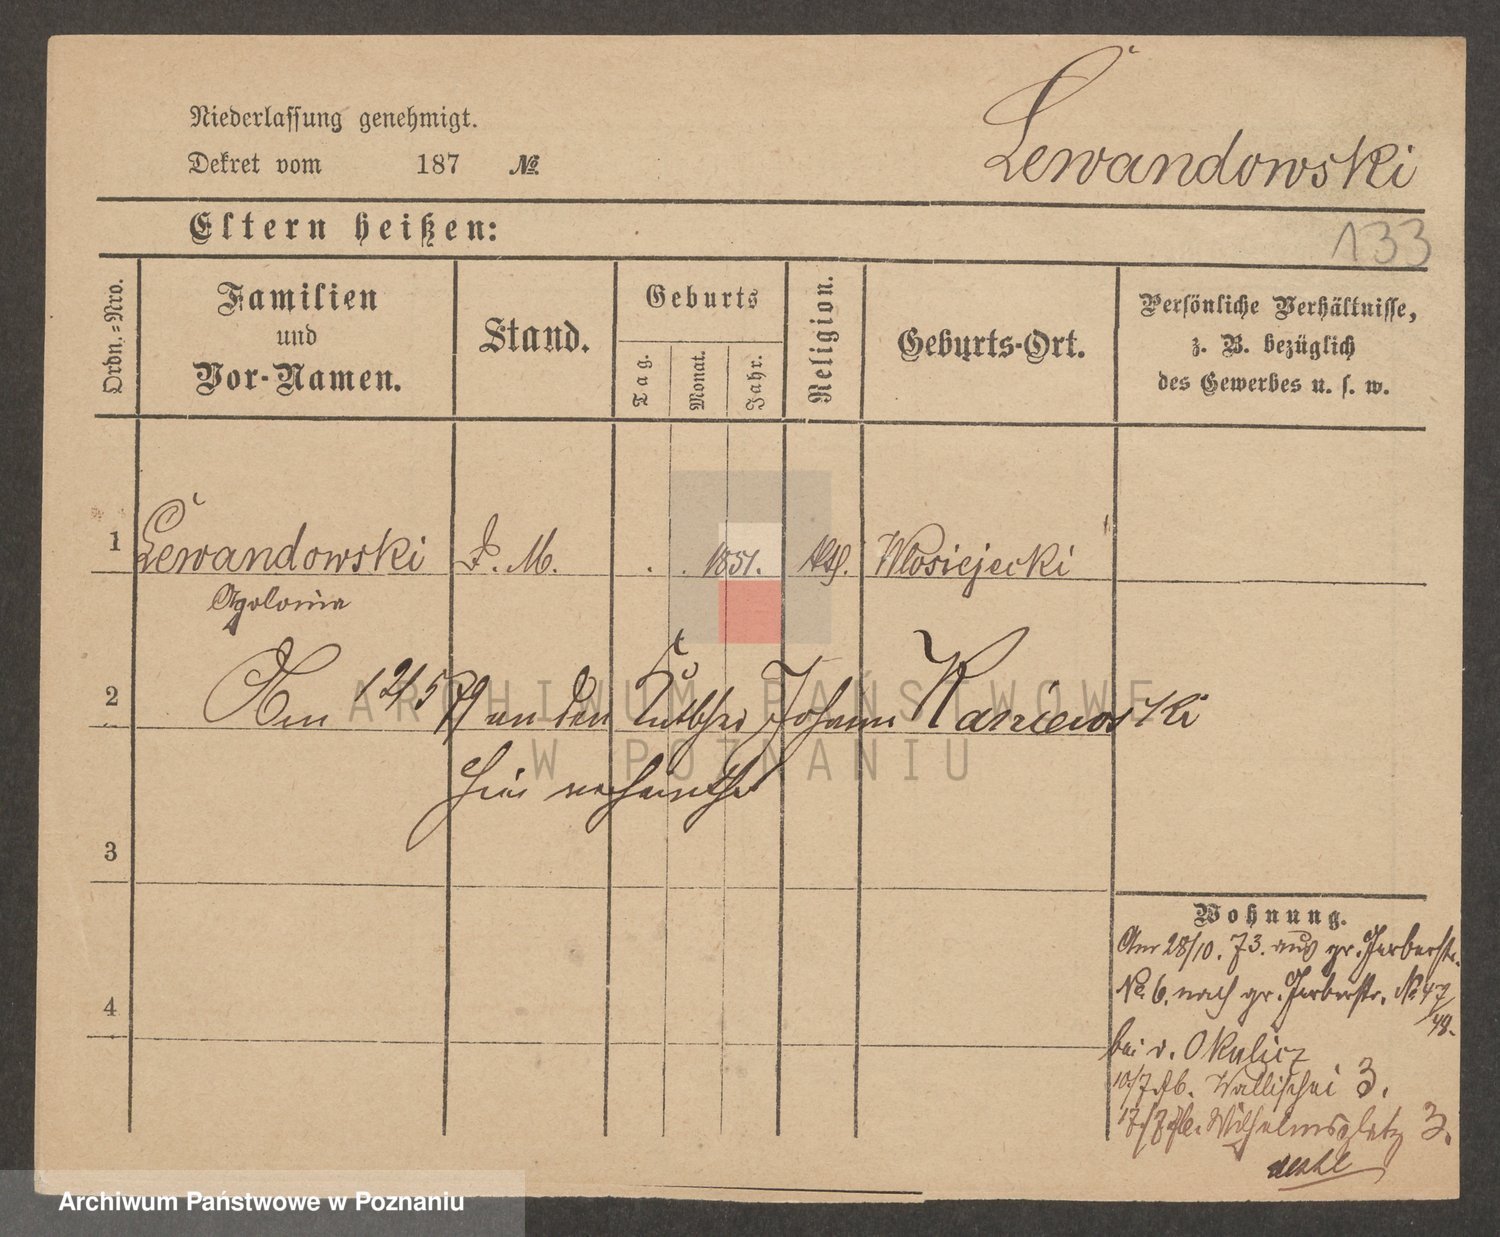 Niederlassung genehmigt.
Dekret vom 187 №
Lewandowski
Eltern heißen:
133
Ordn.-Nro.
Familien
und
Vor-Namen.
Stand.
Geburts
Tag.
Monat.
Jahr.
Religion.
Geburts-Ort.
Persönliche Verhältnisse,
z. B. bezüglich
des Gewerbes u. s. w.
1 Lewandowski D. M. . . 1851. kth. Wlosiejecki
Apolonia
2 Am 12/5 79 an den Johann Kaniewski
hier
3
Wohnung.
Am 28/10. 73. aus gr. Gerberstr.
No. 6. nach gr. Gerberstr. No 47/48.
4
bei v. Okulicz
10/7 Wallischei 3.
17/7 Wilhelmsplatz 3.
ARCHIWUM PAŃSTWOWE
W POZNANIU
Archiwum Państwowe w Poznaniu